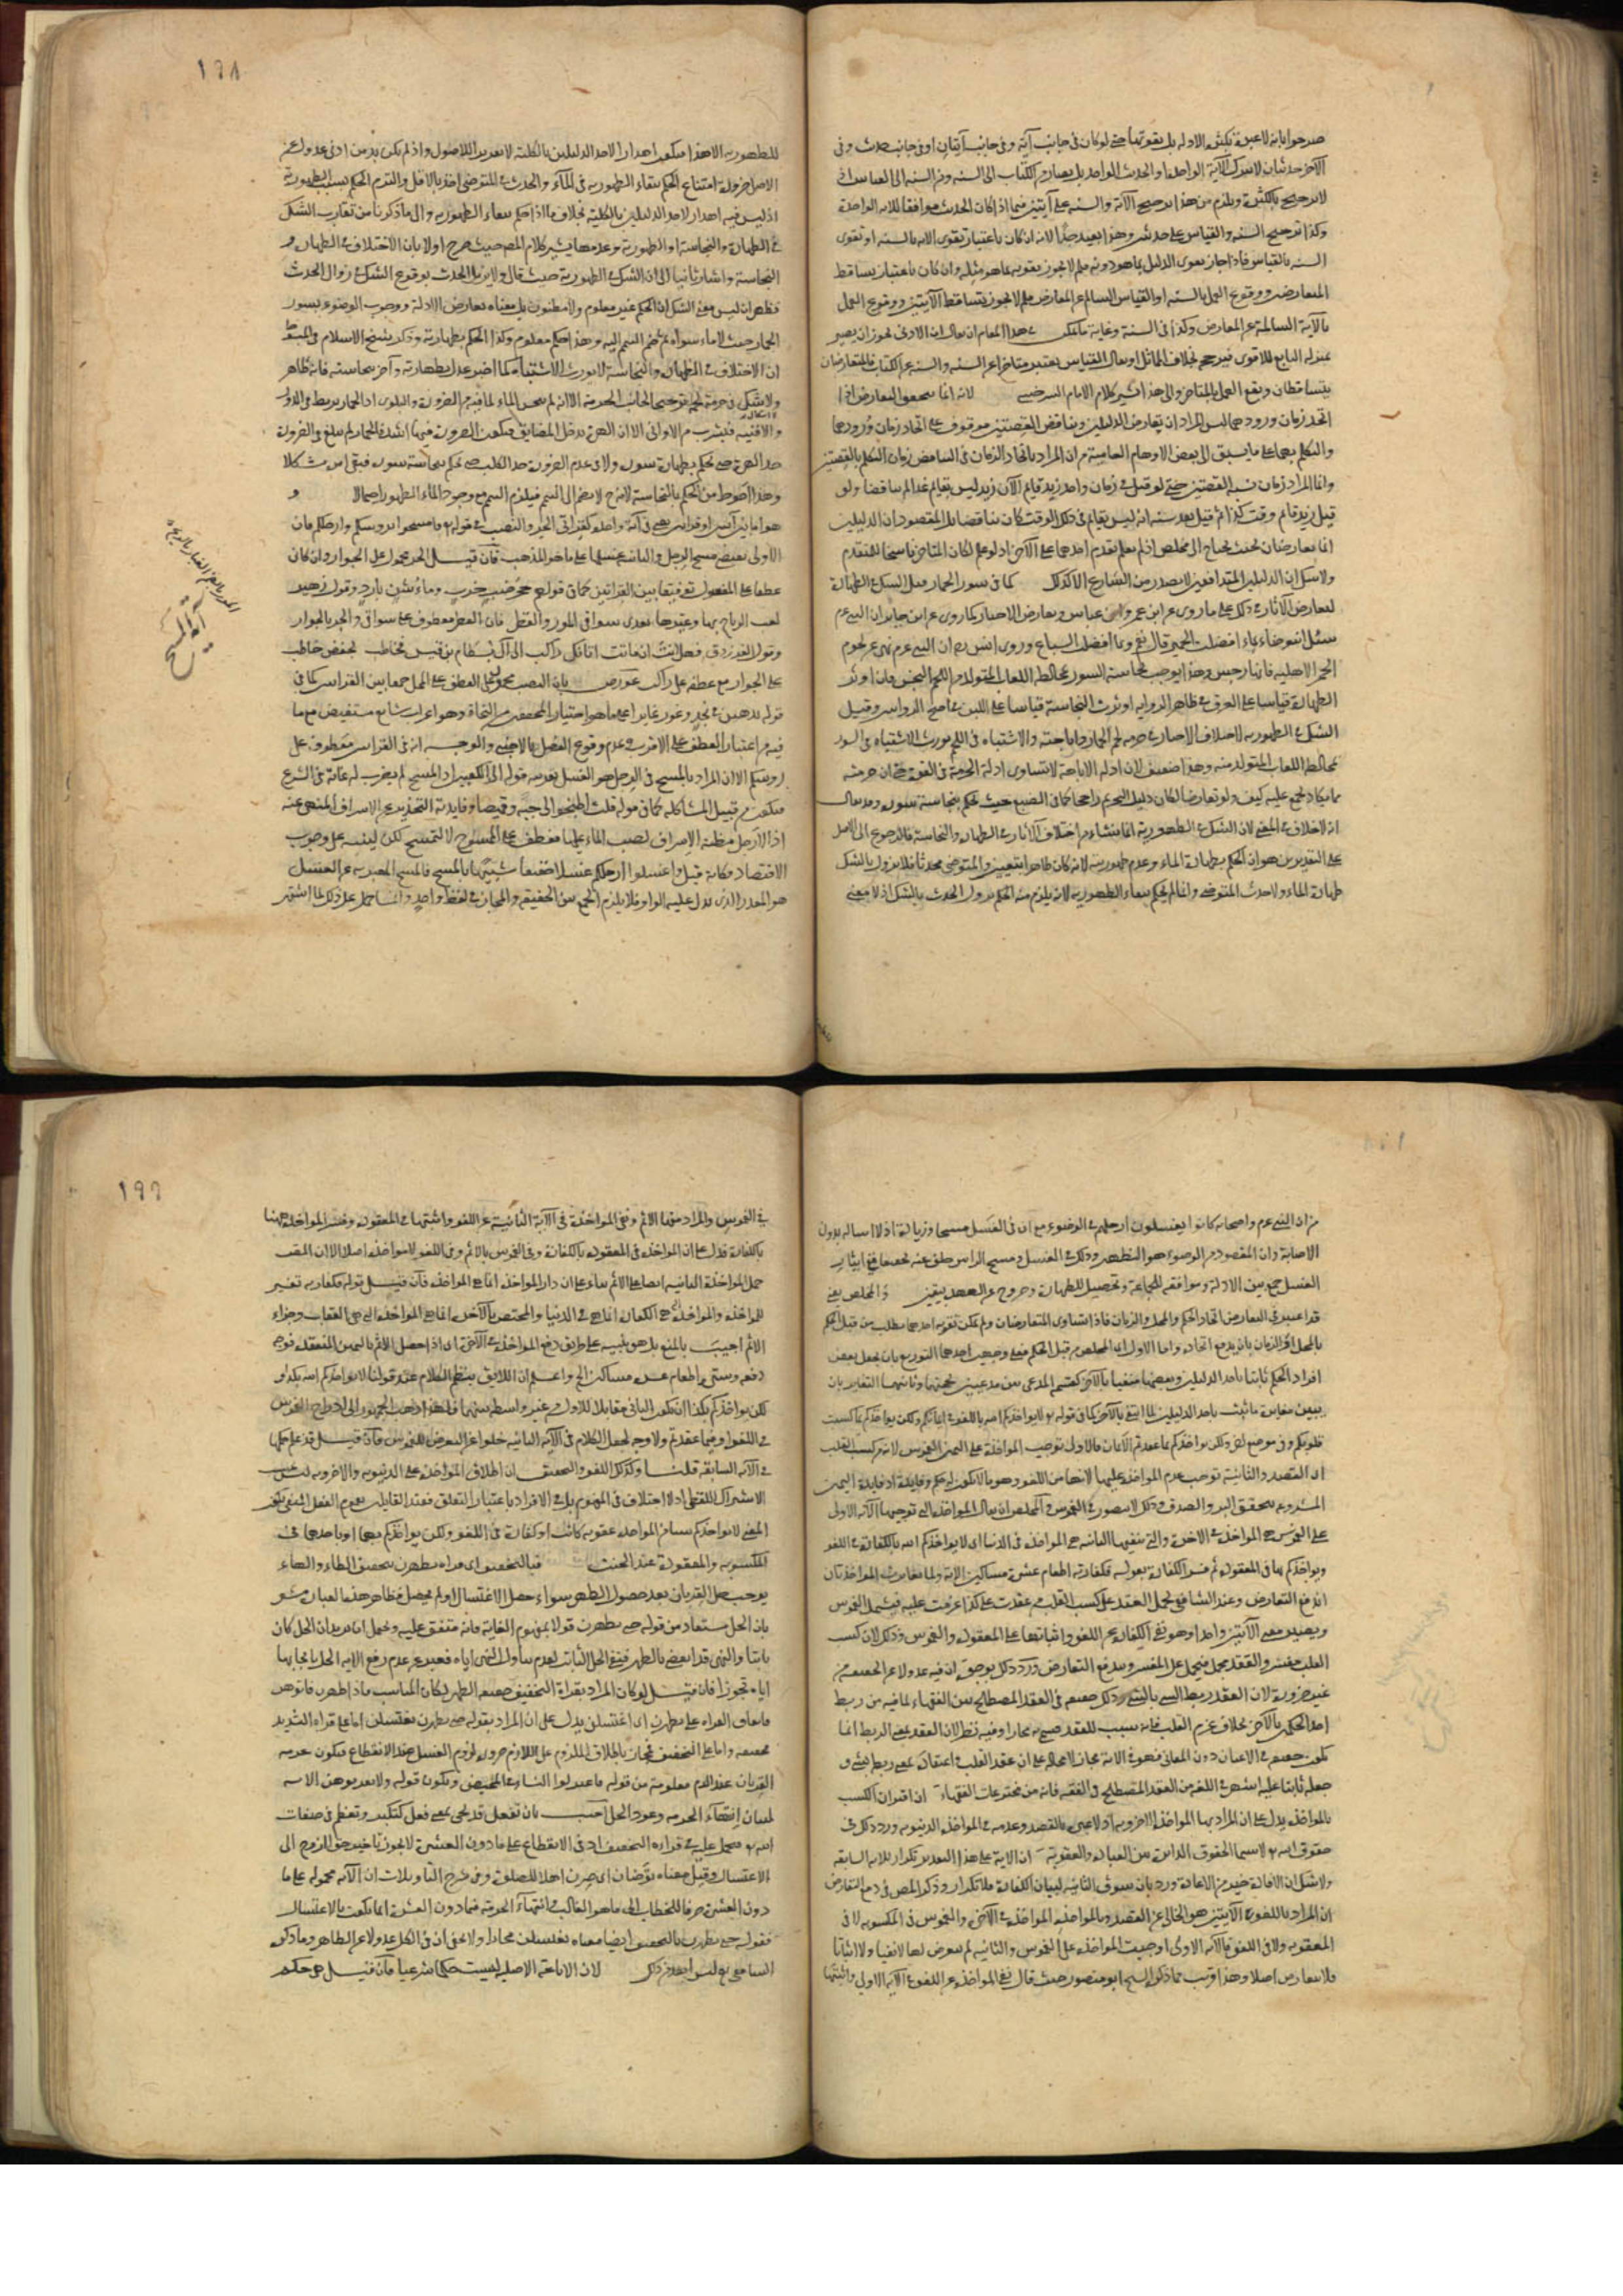 صرحوا بانه لا عبرة بكثرة الادلة بل بقوتها حتى لو كان في جانب آية وفي جانب آيتان او في جانب حديث وفي
الآخر حديثان لا يترك الآية الواحدة او الحديث الواحد بل يصار من الكتاب الى السنة ومن السنة الى القياس اذ
لا ترجيح بالكثرة ويلزم من هذا ترجيح الآية والسنة على آيتين فيما اذا كان الحديث موافقا للآية الواحدة
وكذا ترجيح السنة والقياس على حديثين وهذا بعيد جدا لانه ان كان باعتبار تقوى الآية بالسنة او تقوى
السنة بالقياس فاذا جاز تقوى الدليل بما هو دونه فلم لا يجوز تقويه بما هو مثله وان كان باعتبار تساقط
المتعارضين ووقوع العمل بالسنة او القياس السالم عن المعارض فلم لا يجوز تساقط الآيتين ووقوع العمل
بالآية السالمة عن المعارض وكذا في السنة وغاية ما يمكن في هذا المقام ان يقال ان الادنى يجوز ان يصير
بمنزلة التابع للاقوى فيرجحه بخلاف المماثل او يقال القياس يعتبر متأخرا عن السنة والسنة عن الكتاب فالمتعارضان
يتساقطان ويقع العمل بالمتأخر والى هذا اشير كلام الامام السرخسي لانه انما يتحقق التعارض اذا
اتحد زمان ورودهما ليس المراد ان تعارض الدليلين وتناقض القضيتين موقوف على اتحاد زمان ورودهما
والتكلم بهما على ما يسبق الى بعض الاوهام العامية من ان المراد باتحاد الزمان في التناقض زمان التكلم بالقضيتين
وانما المراد زمان نسبة القضيتين حتى لو قيل في زمان واحد زيد قايم الآن زيد ليس بقايم غدا لم يتناقضا ولو
قيل زيد قايم وقت كذا ثم قيل بعد سنة انه ليس بقايم في ذلك الوقت كان تناقضا بل المقصود ان الدليلين
انما يتعارضان بحيث يحتاج الى مخلص اذا لم يعلم تقدم احدهما على الآخر اذ لو علم لكان المتأخر ناسخا للمتقدم
ولا شك ان الدليلين المتدافعين لا يصدر من الشارع الا كذلك كما في سور الحمار قيل الشك في الطهارة
لتعارض الآثار في ذلك على ما روى عن ابن عمر وابن عباس وتعارض الاخبار كما روى عن ابن جابر ان النبي عم
سئل انتوضأ بماء افضلت الحمر قال نعم وبما افضلت السباع وروى انس رض ان النبي عم نهى عن لحوم
الحمر الاهلية فانها رجس وهذا يوجب نجاسة السور لمخالطة اللعاب المتولد من اللحم النجس فان اوثر
الطهارة قياسا على العرق في ظاهر الرواية او نرث النجاسة قياسا على اللبن في اصح الروايتين وقيل
الشك في الطهورية لاختلاف الاخبار في حرمة لحم الحمار واباحته والاشتباه في اللحم يورث الاشتباه في السور
لمخالطة اللعاب المتولد منه وهذا ضعيف لان ادلة الاباحة لا تساوى ادلة الحرمة في القوة حتى ان حرمته
مما يكاد يجمع عليه كيف ولو تعارضا لكان دليل التحريم راجحا كما في الضبع حيث يحكم بنجاسة سوره وقد يقال
انه لا خلاف في المعنى لان الشك في الطهورية انما ينشأ من اختلاف الآثار في الطهارة والنجاسة فالرجوع الى الاصل
على التقديرين هو ان الحكم بطهارة الماء وعدم طهوريته لانه كان طاهرا بيقين والمتوضى محدثا فلا يزول بالشك
طهارة الماء ولا حدث المتوضى وانما لم يحكم ببقاء الطهورية لانه يلزم منه الحكم بزوال الحدث بالشك اذ لا معنى
١٩٨
للطهورية الا هذا فيكون اهدارا لاحد الدليلين بالكلية لا تقريرا للاصول واذ لم يكن بد من ادنى عدول عن
الاصل ضرورة امتناع الحكم ببقاء الطهورية في الماء والحدث في المتوضى اخذ بالاقل والتزم الحكم بسلب الطهورية
اذ ليس فيه اهدار لاحد الدليلين بالكلية بخلاف ما اذا حكم ببقاء الطهورية والى ما ذكرنا من تقارب الشك
في الطهارة والنجاسة او الطهورية وعدمها يشير كلام المص حيث صرح اولا بان الاختلاف في الطهارة و
النجاسة واشار ثانيا الى ان الشك في الطهورية حيث قال ولا يزيل الحدث بوقوع الشك في زوال الحدث
فظهر ان ليس معنى الشك ان الحكم غير معلوم ولا مظنون بل معناه تعارض الادلة ووجوب الوضوء بسور
الحمار حيث لا ماء سواه ثم ضم التيمم اليه وهذا حكم معلوم وكذا الحكم بطهارته وذكر شيخ الاسلام في المبسوط
ان الاختلاف في الطهارة والنجاسة لا يورث الاشتباه كما اخبر عدل بطهارته وآخر بنجاسته فانه طاهر
ولا شك في حرمة لحمه ترجيحا لجانب الحرمة الا انه لم ينجس الماء لما فيه من الضرورة والبلوى اذ الحمار يربط في الدور
والافنية فيشرب من الاواني الا ان الهرة تدخل المضايق فتكون الضرورة فيها اشد فالحمار لم يبلغ في الضرورة
حد الهرة حتى يحكم بطهارة سوره ولا في عدم الضرورة حد الكلب حتى يحكم بنجاسة سوره فبقى امره مشكلا
وهذا احوط من الحكم بالنجاسة لانه ح لا يضم الى التيمم فيلزم التيمم مع وجود الماء الطهور احتمالا و
هو اما بين آيتين او قراءتين في آية واحدة كقراءتى الجر والنصب في قوله تع وامسحوا برؤسكم وارجلكم فان
الاولى تقتضى مسح الرجل والثانية غسلها على ما هو المذهب فان قيل الجر محمول على الجوار وان كان
عطفا على المغسول توفيقا بين القراءتين كما في قولهم حجر ضب خرب وماء شن بارد وقول زهير
لعب الرياح بها وغيرها بعدى سوافى المور والقطر فان القطر معطوف على سوافى والجر بالجوار
وقول الفرزدق فهل انت ان ماتت اتانك راكب الى آل بسطام بن قيس فخاطب بخفض خاطب
على الجوار مع عطفه على راكب عورض بان النصب محمول على العطف على المحل جمعا بين القراءتين كما في
قوله يذهبن في نجد وغور غايرا على ما هو اختيار المحققين من النحاة وهو اعراب شايع مستفيض مع ما
فيه من اعتبار العطف على الاقرب وعدم وقوع الفصل بالاجنبى والوجه انه في القراءتين معطوف على
رؤسكم الا ان المراد بالمسح في الرجل هو الغسل بقرينة قوله الى الكعبين اذ المسح لم يضرب له غاية في الشرع
فيكون من قبيل المشاكلة كما في قوله قلت اطبخوا لى جبة وقميصا وفايدته التحذير عن الاسراف المنهى عنه
اذ الارجل مظنة الاسراف بصب الماء عليها فعطفت على الممسوح لا لتمسح لكن لينبه على وجوب
الاقتصاد فكانه قيل واغسلوا ارجلكم غسلا خفيفا شبيها بالمسح فالمسح المعبر به عن الغسل
هو المقدر الذى يدل عليه الواو فلا يلزم الجمع بين الحقيقة والمجاز في لفظ واحد وانما حمل على ذلك لما اشتهر
آية المسح
من ان النبى عم واصحابه كانوا يغسلون ارجلهم في الوضوء مع ان في الغسل مسحا وزيادة اذ لا اسالة بدون
الاصابة وان المقصود من الوضوء هو التطهر وذلك في الغسل ومسح الراس خلف عنه تخفيفا ففى ايثار
الغسل جمع بين الادلة وموافقة للجماعة وتحصيل للطهارة وخروج عن العهدة بيقين والمخلص يعنى
قد اعتبر في التعارض اتحاد الحكم والمحل والزمان فاذا تساوى المتعارضان ولم يمكن تقوية احدهما يطلب من قبل الحكم
بالمحل او الزمان بان يدفع اتحاده واما الاول اى المخلص من قبل الحكم فعلى وجهين احدهما التوزيع بان يجعل بعض
افراد الحكم ثابتا باحد الدليلين وبعضها منفيا بالآخر كقسمة المدعى بين مدعيين بحجتيهما وثانيهما التغاير بان
يبين مغايرة ما ثبت باحد الدليلين لما انتفى بالآخر كما في قوله تع لا يؤاخذكم الله باللغو في ايمانكم ولكن يؤاخذكم بما كسبت
قلوبكم وفي موضع آخر ولكن يؤاخذكم بما عقدتم الايمان فالاول توجب المؤاخذة على اليمين الغموس لانه من كسب القلب
اى القصد والثانية توجب عدم المؤاخذة عليها لانها من اللغو وهو ما لا يكون له حكم وفايدة اذ فايدة اليمين
المشروعة تحقق البر والصدق وذلك لا يتصور في الغموس والمخلص ان يقال المؤاخذة التى توجبها الآية الاولى
على الغموس هى المؤاخذة في الآخرة والتى تنفيها الثانية هى المؤاخذة في الدنيا اى لا يؤاخذكم الله بالكفارة في اللغو
ويؤاخذكم بها في المعقودة ثم فسر الكفارة بقوله فكفارته اطعام عشرة مساكين الآية ولما تغايرت المؤاخذتان
اندفع التعارض وعند الشافعى يحمل العقد على كسب القلب من عقدت على كذا عزمت عليه فيشمل الغموس
ويصير معنى الآيتين واحدا وهو نفى الكفارة عن اللغو واثباتها على المعقودة والغموس وذلك لان كسب
القلب مفسر والعقد مجمل فيحمل على المفسر ويندفع التعارض ورد ذلك بوجوه ان فيه عدولا عن الحقيقة من
غير ضرورة لان العقد ربط الشئ بالشئ وذلك حقيقة في العقد المصطلح بين الفقهاء لما فيه من ربط
احد الحكمين بالآخر بخلاف عزم القلب فانه سبب للعقد فسمى به مجازا وفيه نظر لان العقد بمعنى الربط انما
يكون حقيقة في الاعيان دون المعانى فهو في الآية مجاز لا محالة على ان عقد القلب في اعتقاده بمعنى ربطه بشئ و
جعله ثابتا عليه اشهر في اللغة من العقد المصطلح في الفقه فانه من مخترعات الفقهاء ان اقتران الكسب
بالمؤاخذة يدل على ان المراد بها المؤاخذة الاخروية اذ لا عبرة بالقصد وعدمه في المؤاخذة الدنيوية ورد ذلك في
حقوق الله تع لا سيما الحقوق الدايرة بين العبادة والعقوبة ان الآية على هذا التقدير تكرار للآية السابقة
ولا شك ان الافادة خير من الاعادة ورد بان سوق الثانية لبيان الكفارة فلا تكرار وذكر المص في دفع التعارض
ان المراد باللغو في الآيتين هو الخالى عن القصد وبالمؤاخذة المؤاخذة في الآخرة والغموس في المكسوبة لا في
المعقودة ولا في اللغو فالآية الاولى اوجبت المؤاخذة على الغموس والثانية لم تتعرض لها لا نفيا ولا اثباتا
فلا تعارض اصلا وهذا قريب مما ذكره الشيخ ابو منصور حيث قال نفى المؤاخذة عن اللغو في الآية الاولى واثبتها
١٩٩
في الغموس والمراد منها الاثم ونفى المؤاخذة في الآية الثانية عن اللغو واثبتها في المعقودة وفسر المؤاخذة ههنا
بالكفارة فدل على ان المؤاخذة في المعقودة بالكفارة وفي الغموس بالاثم وفي اللغو لا مؤاخذة اصلا الا ان المص
حمل المؤاخذة الثانية ايضا على الاثم بناء على ان دار المؤاخذة انما هى المؤاخذة فان قيل قوله فكفارته تفسير
للمؤاخذة والمؤاخذة التى هى الكفارة انما هى في الدنيا والمختص بالآخرة انما هى المؤاخذة التى هى العقاب وجزاء
الاثم اجيب بالمنع بل هو تنبيه على طريق دفع المؤاخذة في الآخرة اى اذا حصل الاثم باليمين المنعقدة فوجه
دفعه وستره اطعام عشرة مساكين الخ واعلم ان اللائق بنظم الكلام عند قولنا لا يؤاخذكم الله بكذا و
لكن يؤاخذكم بكذا ان يكون الثانى مقابلا للاول من غير واسطة بينهما فلهذا ذهب الجمهور الى ادراج الغموس
في اللغو او فيما عقدتم ولا وجه لجعل الكلام في الآية الثانية خلوا عن التعرض للغموس فان قيل قد علم حكمها
في الآية السابقة قلنا وكذلك اللغو والتحقيق ان اطلاق المؤاخذة على الدنيوية والاخروية ليس بحسب
الاشتراك اللفظى اذ لا اختلاف في المفهوم بل في الافراد باعتبار التعلق فعند القايلين بعموم الفعل المنفى يكون
المعنى لا يؤاخذكم بشئ من المؤاخذة عقوبة كانت او كفارة في اللغو ولكن يؤاخذكم بهما او باحدهما في
المكسوبة والمعقودة عند الحنث فبالتخفيف اى قراءة يطهرن بتخفيف الطاء والهاء
يوجب حل القربان بعد حصول الطهر سواء حصل الاغتسال او لم يحصل فظاهر هذه العبارة مشعر
بان الحل مستفاد من قوله حتى يطهرن قولا بمفهوم الغاية فانه متفق عليه ويحتمل انه يريد ان الحل كان
ثابتا والنهى قد انقضى بالطهر فبقى الحل الثابت لعدم تناول النهى اياه فعبر عن عدم رفع الآية الحل بايجابها
اياه تجوزا فان قيل لو كان المراد بقراءة التخفيف حقيقة الطهر لكان المناسب فاذا طهرن فاتوهن
فاتفاق القراء على تطهرن اى اغتسلن يدل على ان المراد بقوله حتى يطهرن يغتسلن اما على قراءة التشديد
فحقيقة واما على التخفيف فمجاز باطلاق الملزوم على اللازم ضرورة لزوم الغسل عند الانقطاع فيكون حرمة
القربان عند الدم معلومة من قوله فاعتزلوا النساء في المحيض ويكون قوله ولا تقربوهن الآية
لبيان انتهاء الحرمة وعود الحل اجيب بان تفعل قد يجئ بمعنى فعل كتكبر وتعظم في صفات
الله تع فيحمل عليه في قراءة التخفيف اذ في الانقطاع على ما دون العشرة لا يجوز تاخير حق الزوج الى
الاغتسال وقيل معناه توضأن اى صرن اهلا للصلوة وفي شرح التأويلات ان الآية محمولة على ما
دون العشرة صرفا للخطاب الى ما هو الغالب في انتهاء الحرمة فما دون العشرة انما يكون بالاغتسال
فقوله حتى يطهرن بالتخفيف ايضا معناه يغتسلن مجازا ولا يخفى ان في الكل عدولا عن الظاهر وما ذكره
الشافعى رح ليس ابعد من ذلك لان الاباحة الاصلية ليست حكما شرعيا فان قيل هو حكم